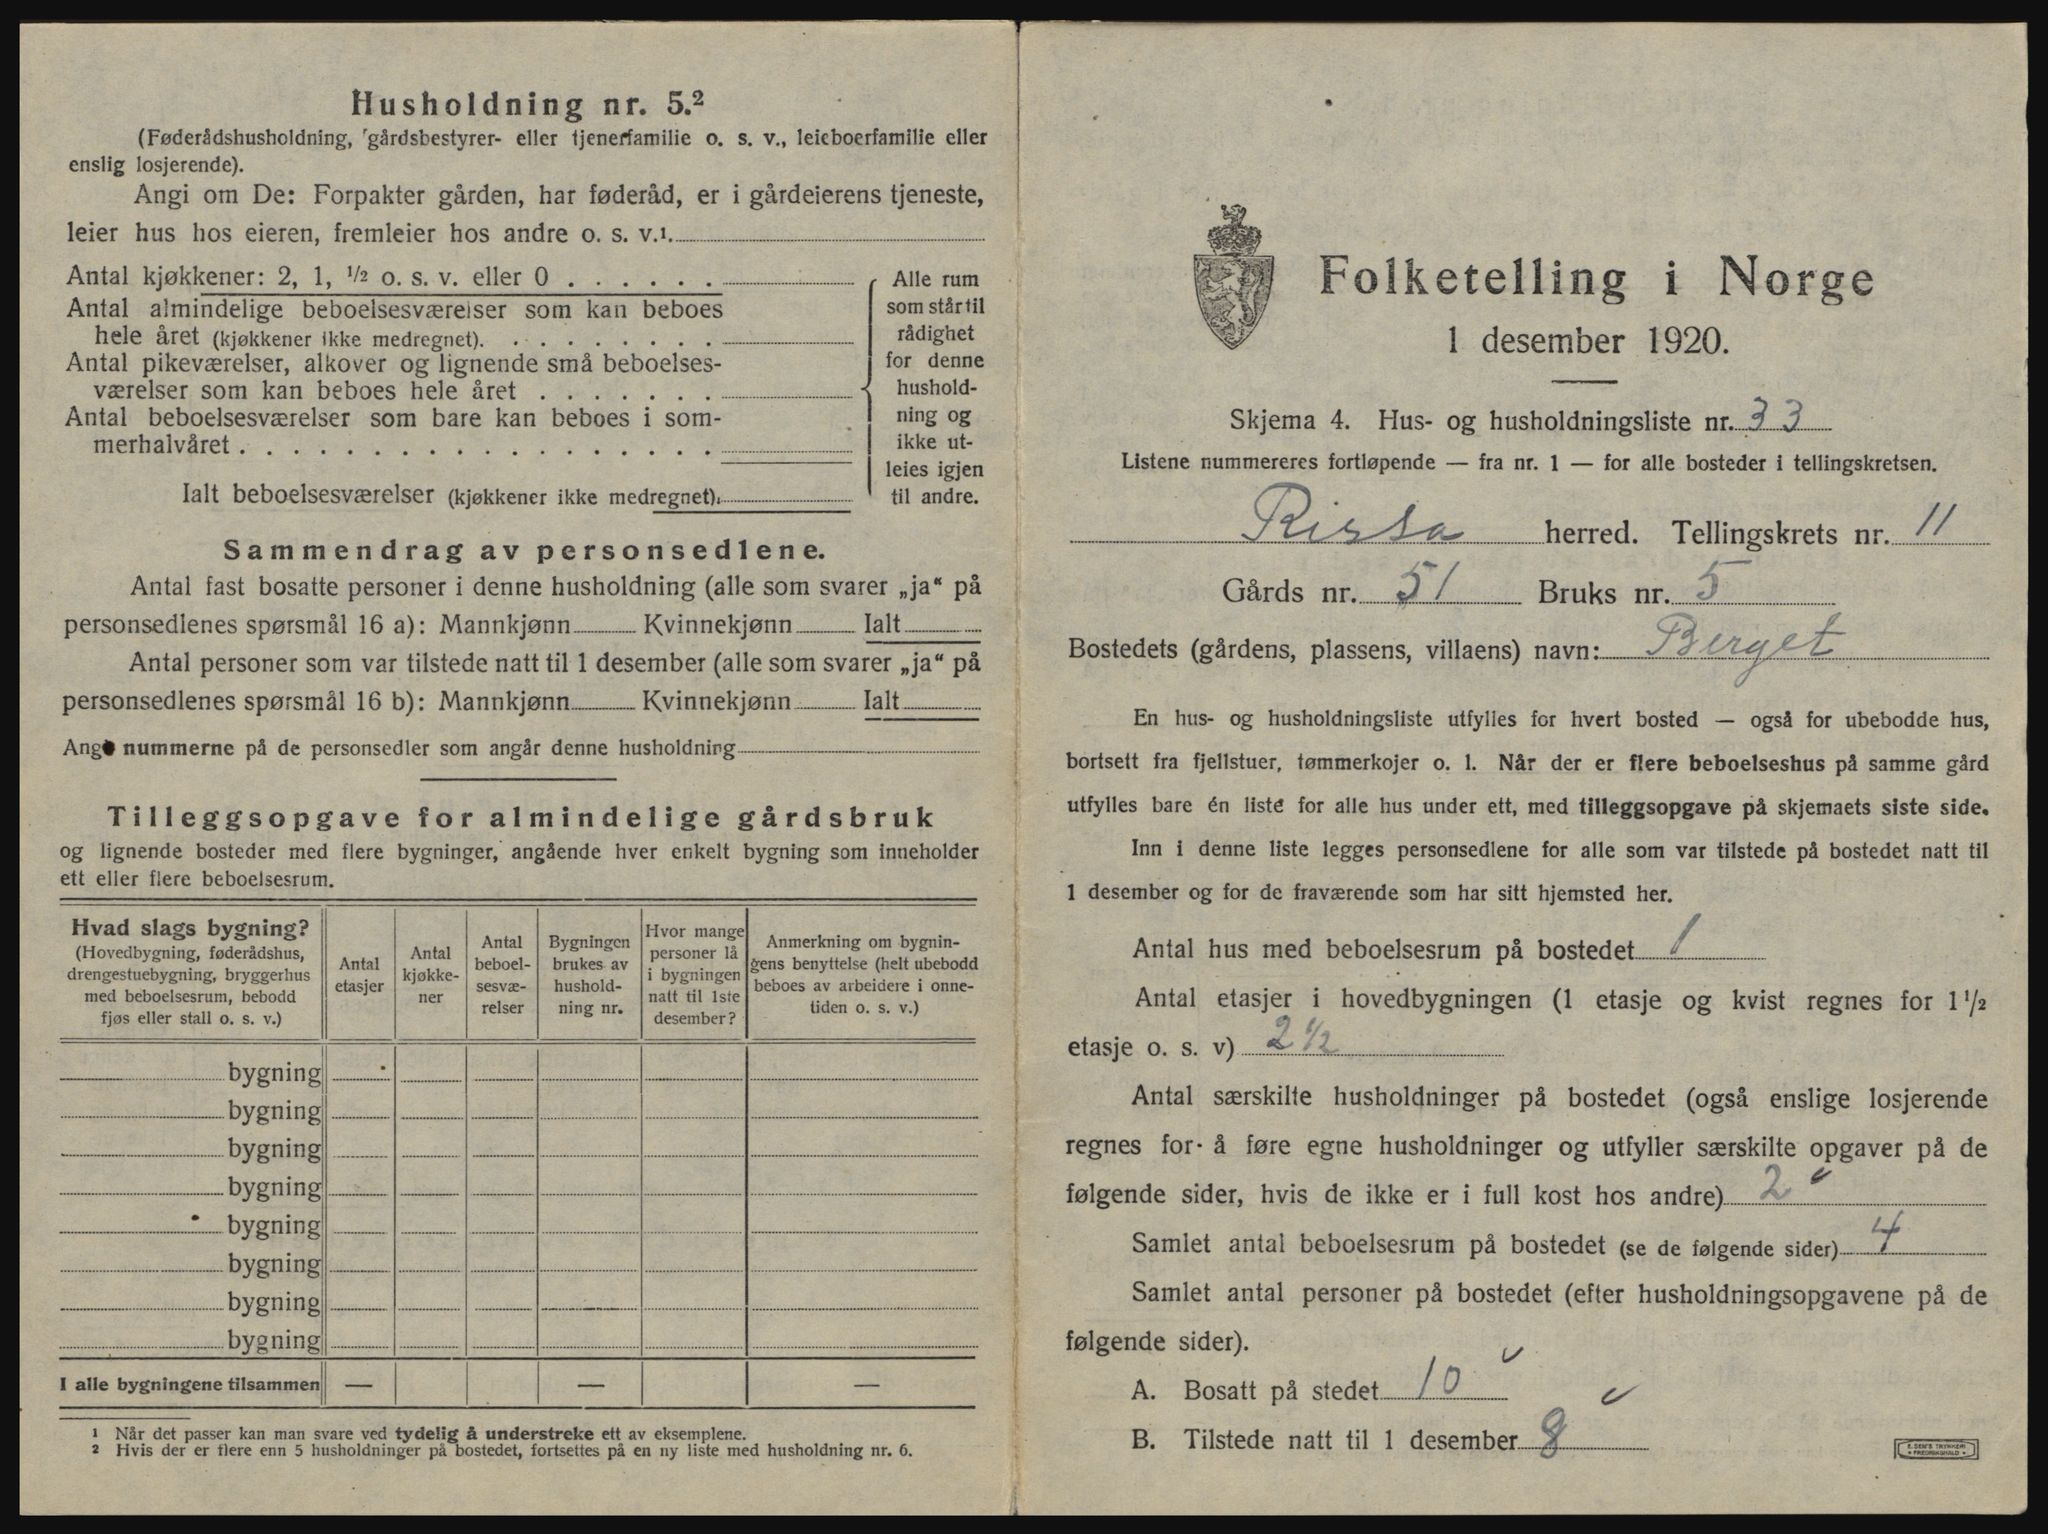 Husholdning nr. 5.²
(Føderådshusholdning, gårdsbestyrer- eller tjenerfamilie o. s. v., leieboerfamilie eller
enslig losjerende).
Angi om De: Forpakter gården, har føderåd, er i gårdeierens tjeneste,
leier hus hos eieren, fremleier hos andre o. s. v.¹.
Antal kjøkkener: 2, 1, ½ o. s. v. eller 0 . . . . . .
Antal almindelige beboelsesværelser som kan beboes
hele året (kjøkkener ikke medregnet). . . . . . . . .
Antal pikeværelser, alkover og lignende små beboelses-
værelser som kan beboes hele året . . . . . . .
Antal beboelsesværelser som bare kan beboes i som-
merhalvåret . . . . . . . . . . . . . . . . . .
Ialt beboelsesværelser (kjøkkener ikke medregnet).
Alle rum
som står til
rådighet
for denne
hushold-
ning og
ikke ut-
leies igjen
til andre.
Sammendrag av personsedlene.
Antal fast bosatte personer i denne husholdning (alle som svarer „ja“ på
personsedlenes spørsmål 16 a): Mannkjønn Kvinnekjønn Ialt
Antal personer som var tilstede natt til 1 desember (alle som svarer „ja“ på
personsedlenes spørsmål 16 b): Mannkjønn Kvinnekjønn Ialt
Angi nummerne på de personsedler som angår denne husholdning
Tilleggsopgave for almindelige gårdsbruk
og lignende bosteder med flere bygninger, angående hver enkelt bygning som inneholder
ett eller flere beboelsesrum.
Hvad slags bygning?
(Hovedbygning, føderådshus,
drengestuebygning, bryggerhus
med beboelsesrum, bebodd
fjøs eller stall o. s. v.)
Antal
etasjer
Antal
kjøkke-
ner
Antal
beboel-
sesvæ-
relser
Bygningen
brukes av
hushold-
ning nr.
Hvor mange
personer lå
i bygningen
natt til 1ste
desember?
Anmerkning om bygnin-
gens benyttelse (helt ubebodd
beboes av arbeidere i onne-
tiden o. s. v.)
bygning
bygning
bygning
bygning
bygning
bygning
bygning
bygning
I alle bygningene tilsammen — — —
¹ Når det passer kan man svare ved tydelig å understreke ett av eksemplene.
² Hvis der er flere enn 5 husholdninger på bostedet, fortsettes på en ny liste med husholdning nr. 6.
Folketelling i Norge
1 desember 1920.
Skjema 4. Hus- og husholdningsliste nr. 33
Listene nummereres fortløpende — fra nr. 1 — for alle bosteder i tellingskretsen.
Rissa herred. Tellingskrets nr. 11
Gårds nr. 51 Bruks nr. 5
Bostedets (gårdens, plassens, villaens) navn: Berget
En hus- og husholdningsliste utfylles for hvert bosted — også for ubebodde hus,
bortsett fra fjellstuer, tømmerkojer o. l. Når der er flere beboelseshus på samme gård
utfylles bare én liste for alle hus under ett, med tilleggsopgave på skjemaets siste side.
Inn i denne liste legges personsedlene for alle som var tilstede på bostedet natt til
1 desember og for de fraværende som har sitt hjemsted her.
Antal hus med beboelsesrum på bostedet 1
Antal etasjer i hovedbygningen (1 etasje og kvist regnes for 1 ½
etasje o. s. v) 2 ½
Antal særskilte husholdninger på bostedet (også enslige losjerende
regnes for å føre egne husholdninger og utfyller særskilte opgaver på de
følgende sider, hvis de ikke er i full kost hos andre) 2
Samlet antal beboelsesrum på bostedet (se de følgende sider) 4
Samlet antal personer på bostedet (efter husholdningsopgavene på de
følgende sider).
A. Bosatt på stedet 10
B. Tilstede natt til 1 desember 8
E. SEM'S TRYKKERI
• FREDRIKSHALD •